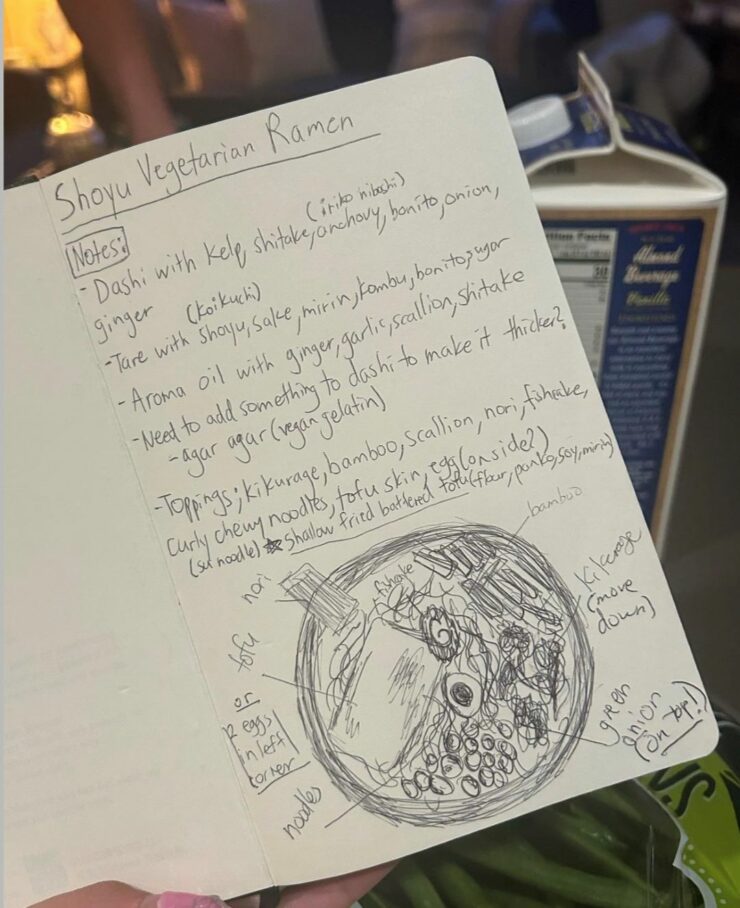 Shoyu Vegetarian Ramen
Notes:
(iriko niboshi)
- Dashi with kelp, shitake, anchovy, bonito, onion,
ginger
(koikuchi)
- Tare with shoyu, sake, mirin, kombu, bonito, sugar
- Aroma oil with ginger, garlic, scallion, shitake
- Need to add something to dashi to make it thicker?
- agar agar (vegan gelatin)
- Toppings; kikurage, bamboo, scallion, nori, fishcake,
curly chewy noodles, tofu skin, egg (on side?)
(sun noodle) ★ Shallow fried battered tofu (flour, panko, soy, mirin)
bamboo
nori
fishcake
kikurage
(move
down)
tofu
or
2 eggs
in left
corner
green
onion
(on top!)
noodles
Nutrition Facts
Almond
Beverage
Vanilla